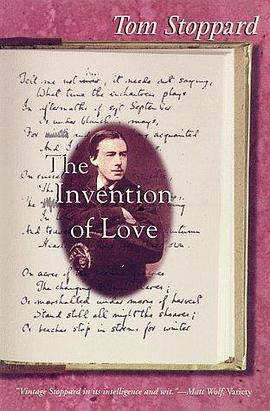 Tom Stoppard
Tell me not here, it needs not saying,
What tune the enchantress plays
In aftermaths of soft September
Or under blanching mays,
For acquainted
And I
The
Invention
of Love
On acres of the
The changing leaves;
Or marshalled under moons of harvest
Stand still all night the sheaves;
Or beeches strip in storms for winter
"Vintage Stoppard in its intelligence and wit."—Matt Wolf, Variety